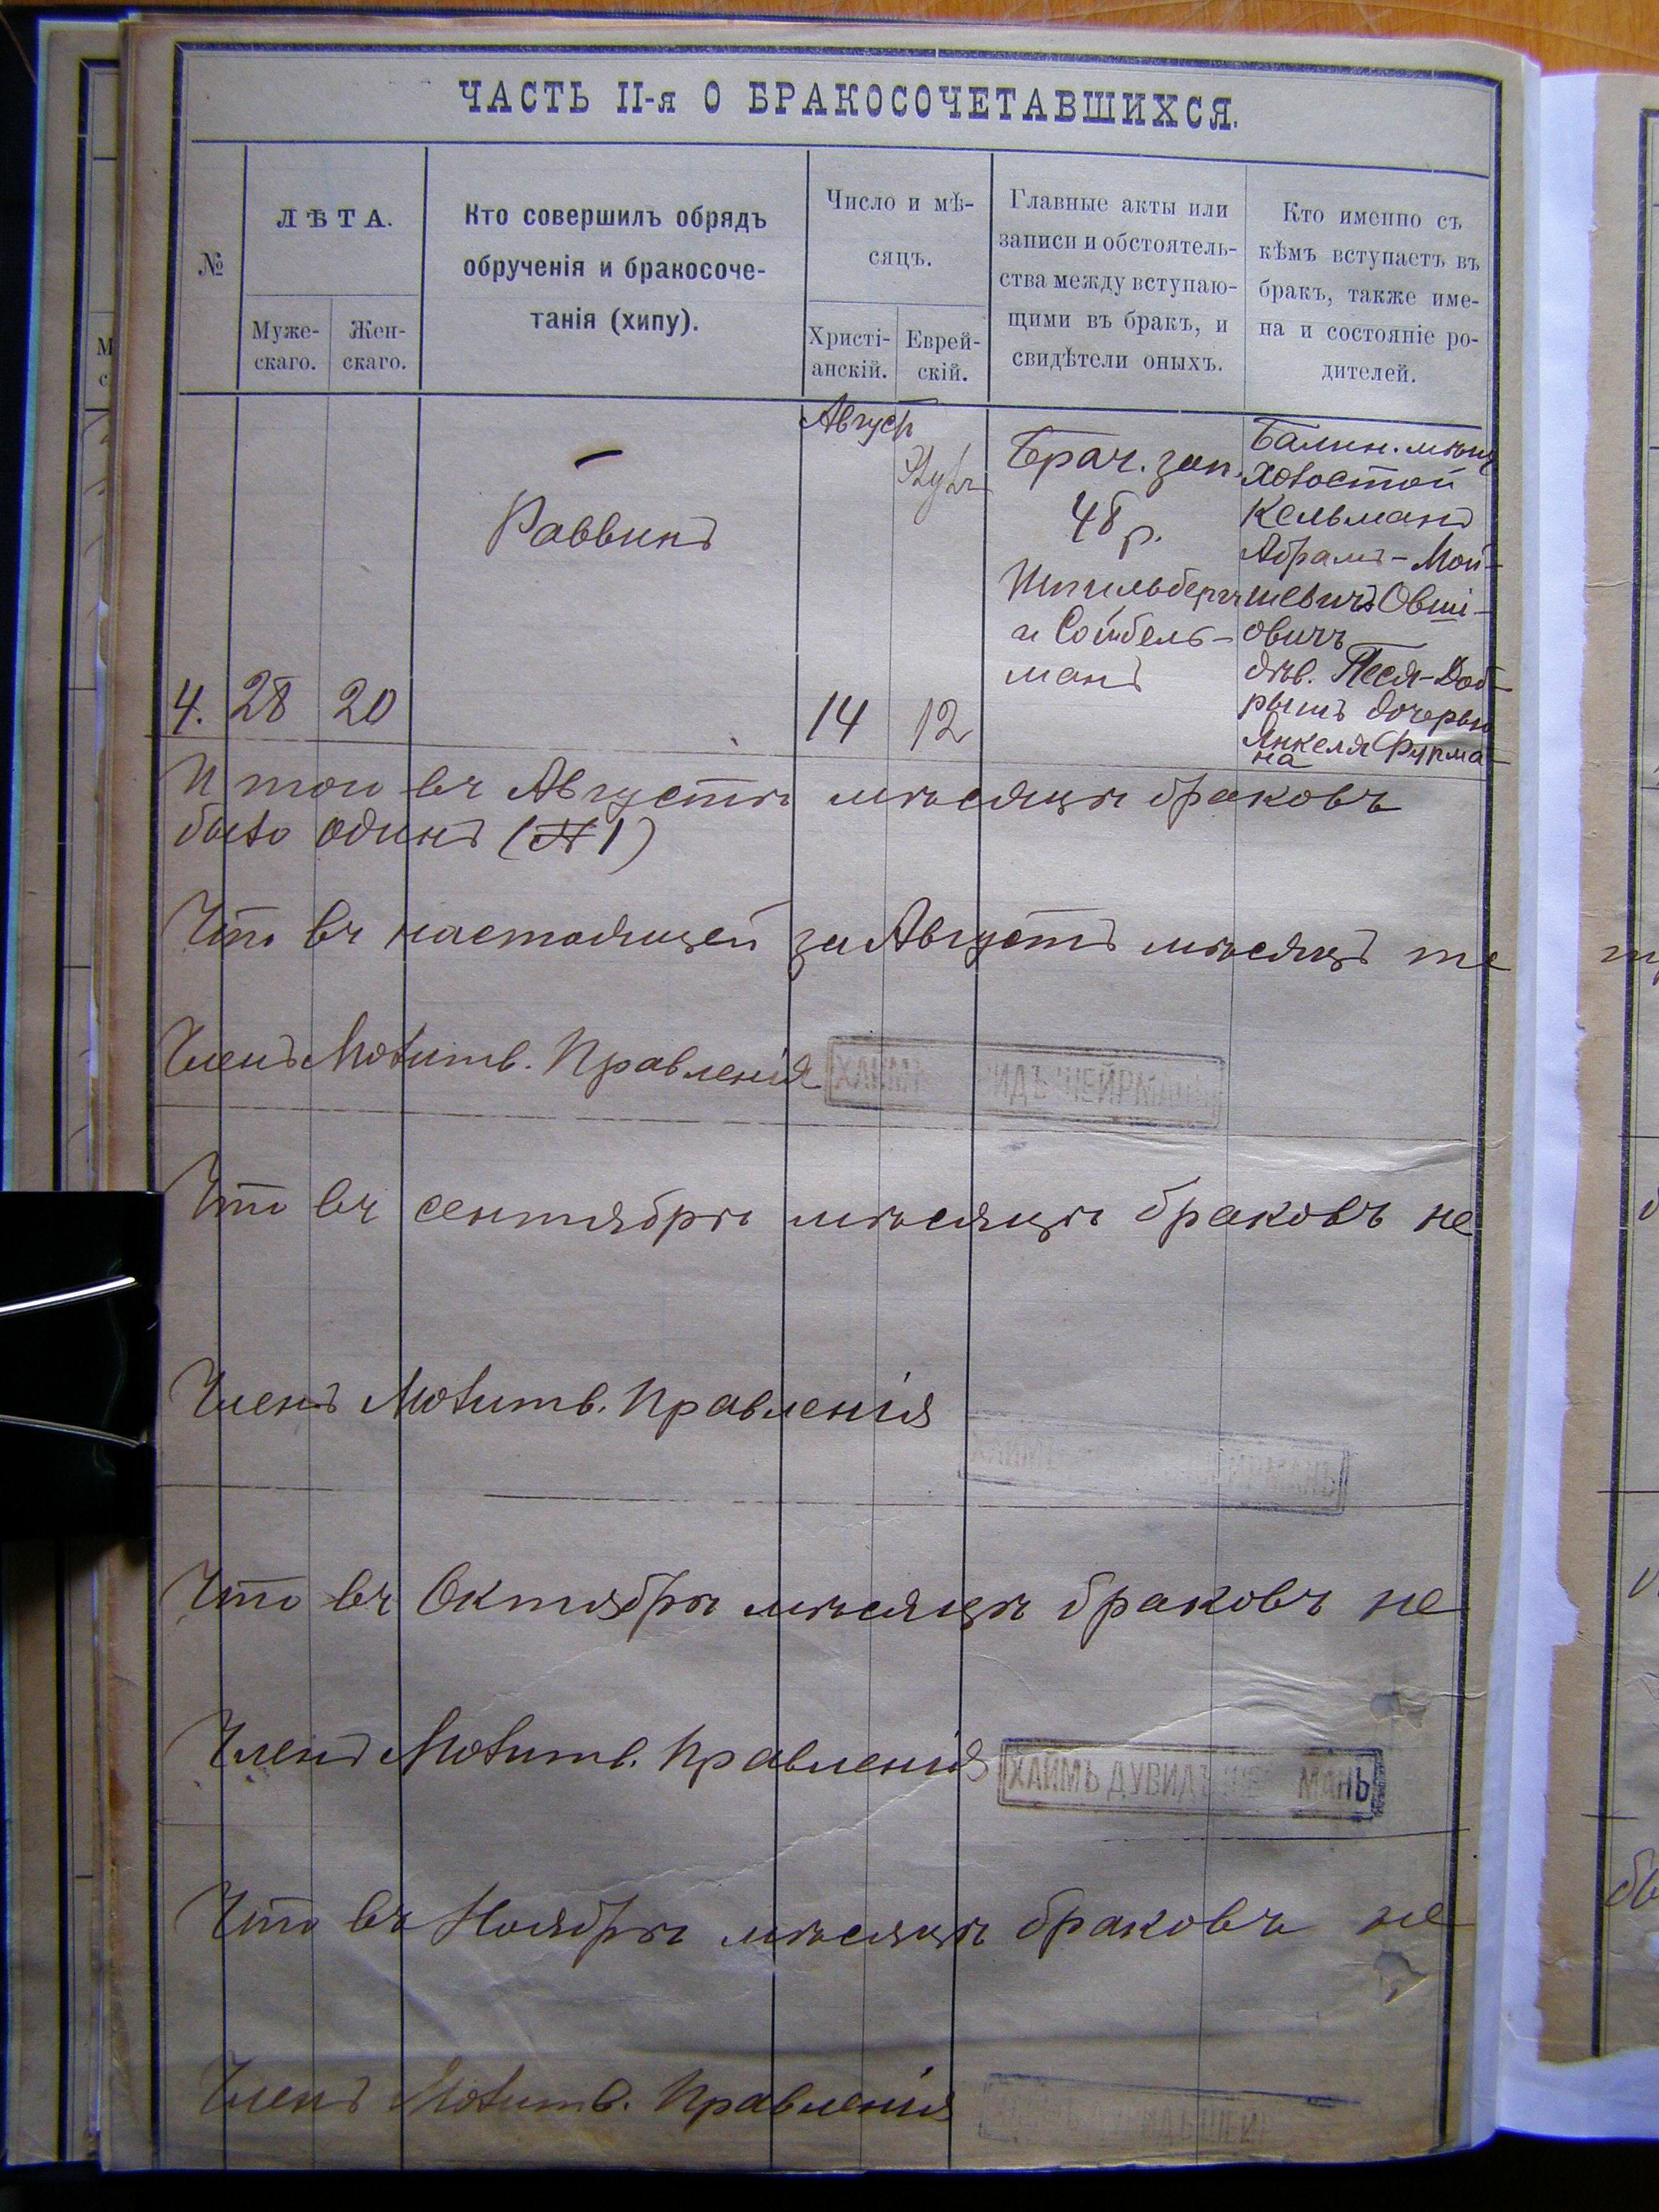 ЧАСТЬ II-я О БРАКОСОЧЕТАВШИХСЯ.
№
ЛѢТА.
Муже-
скаго.
Жен-
скаго.
Кто совершилъ обрядъ
обрученія и бракосоче-
танія (хипу).
Число и мѣ-
сяцъ.
Христі-
анскій.
Еврей-
скій.
Главные акты или
записи и обстоятель-
ства между вступаю-
щими въ бракъ, и
свидѣтели оныхъ.
Кто именно съ
кѣмъ вступаетъ въ
бракъ, также име-
на и состояніе ро-
дителей.
4.
28
20
Раввинъ
Август
14
12
Брач. зап.
48 р.
и Сойбель-
манъ
Балин. мѣщ
Холостой
Кельманъ
Абрамъ-Мой-
шевичъ Овші-
овичъ
дѣв. Песя-Доб-
рышъ дочерью
Янкеля Фурма-
на
Итого въ Августѣ мѣсяцѣ браковъ
было одинъ (№ 1)
Что въ настоящей за Августъ мѣсяцъ те
Членъ Молитв. Правленія
ХАИМЪ ДУВИДЪ ШЕЙРМАНЪ
Что въ сентябрѣ мѣсяцѣ браковъ не
Членъ Молитв. Правленія
Что въ Октябрѣ мѣсяцѣ браковъ не
Членъ Молитв. Правленія
ХАИМЪ ДУВИДЪ МАНЪ
Что въ Ноябрѣ мѣсяцѣ браковъ не
Членъ Молитв. Правленія